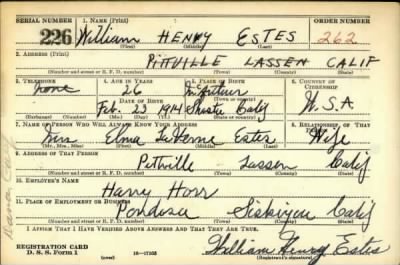 SERIAL NUMBER 1. NAME (Print) ORDER NUMBER
226 William HENRY ESTES 262
(First) (Middle) (Last)
2. ADDRESS (Print)
PITTVILLE LASSEN CALIF
(Number and street or R. F. D. number) (Town) (County) (State)
3. TELEPHONE 4. AGE IN YEARS 5. PLACE OF BIRTH 6. COUNTRY OF CITIZENSHIP
none 26 McArthur
DATE OF BIRTH
Feb. 23 1914 Shasta Calif U.S.A
(Exchange) (Number) (Mo.) (Day) (Yr.) (State or country)
7. NAME OF PERSON WHO WILL ALWAYS KNOW YOUR ADDRESS 8. RELATIONSHIP OF THAT PERSON
Mrs Elma LaVerne Estes Wife
(Mr., Mrs., Miss) (First) (Middle) (Last)
9. ADDRESS OF THAT PERSON
Pittville Lassen Calif
(Number and street or R. F. D. number) (Town) (County) (State)
10. EMPLOYER'S NAME
Harry Horr
11. PLACE OF EMPLOYMENT OR BUSINESS
Pondosa Siskiyou Calif
(Number and street or R. F. D. number) (Town) (County) (State)
I AFFIRM THAT I HAVE VERIFIED ABOVE ANSWERS AND THAT THEY ARE TRUE.
REGISTRATION CARD
D. S. S. Form 1 (over) 16—17105 William Henry Estes
(Registrant's signature)